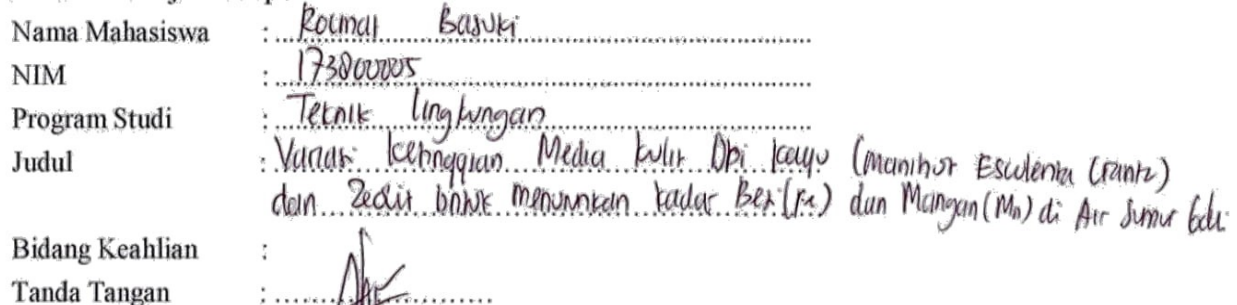 Nama Mahasiswa : Rocmat Basuki
NIM : 173800005
Program Studi : Teknik lingkungan
Judul : Variasi ketinggian Media kulit Ubi kayu (manihot Esculenta Crantz)
dan Zeolit untuk menurunkan kadar Besi (Fe) dan Mangan (Mn) di Air Sumur Gali
Bidang Keahlian :
Tanda Tangan :